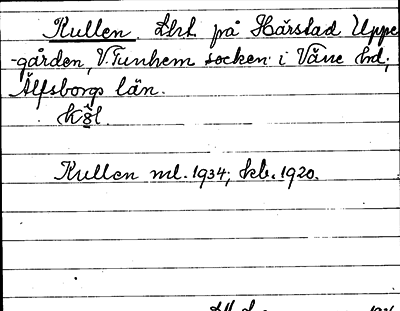 Kullen. Lht på Hårstad Uppe
-gården, V. Tunhem socken i Väne hd,
Älfsborgs län.
Kullen ml. 1934; kb. 1920.